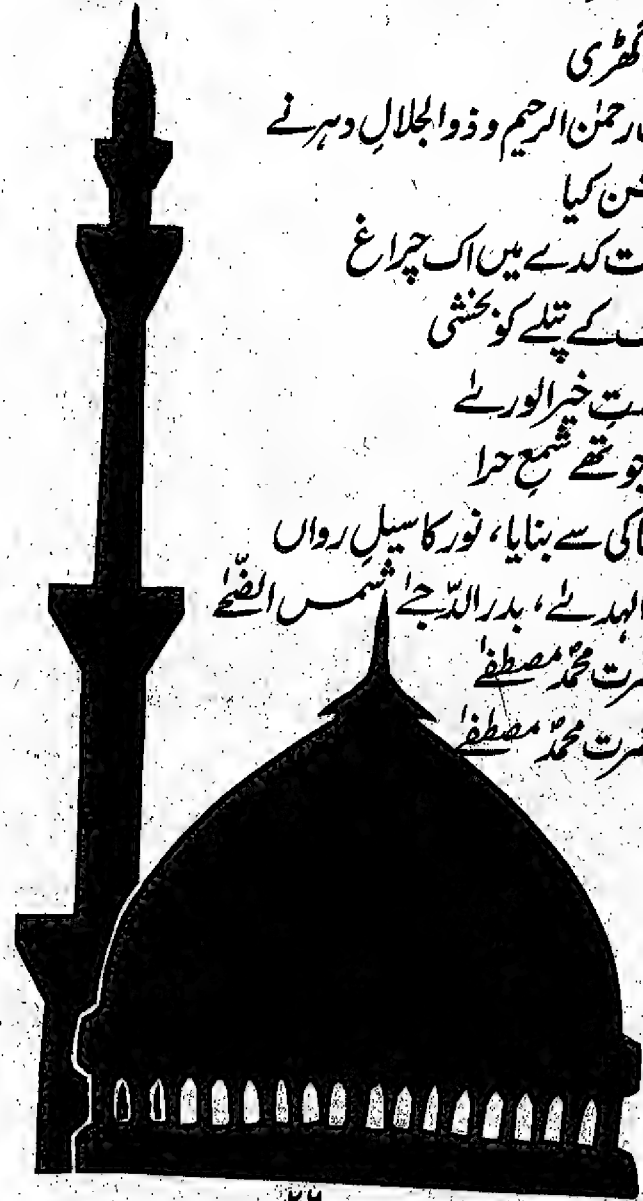 گھڑی
رحمٰن الرحیم و ذوالجلالِ دہر نے
کیا
کدے میں اک چراغ
کے پتلے کو بخشی
خیرالوریٰ
جو تھے شمعِ حرا
خاکی سے بنایا، نور کا سیلِ رواں
الہدیٰ، بدرالدّجیٰ شمس الضّحیٰ
حضرت محمدؐ مصطفےٰ
حضرت محمدؐ مصطفےٰ
۲۶